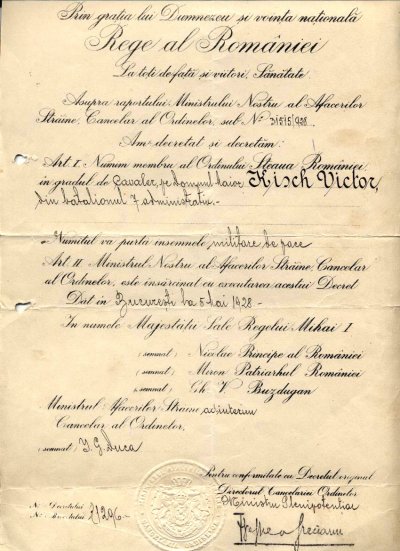 Prin grația lui Dumnezeu și voința națională
Rege al României
La toți de față și viitori, Sănătate
Asupra raportului Ministrului Nostru al Afacerilor
Străine, Cancelar al Ordinelor, sub No 31515/928.
Am decretat și decretăm:
Art I. Numim membru al Ordinului Steaua României
în gradul de Cavaler, pe Kisch Victor,
din batalionul 7 administrativ.-
Numitul va purta însemnele militare de pace
Art II. Ministrul Nostru al Afacerilor Străine Cancelar
al Ordinelor, este însărcinat cu executarea acestui Decret
Dat în București la 5 Mai 1928.-
În numele Majestății Sale Regelui Mihai I
(semnat) Nicolae Principe al României
(semnat) Miron Patriarhul României
(semnat) Gh. V. Buzdugan
Ministrul Afacerilor Străine ad interim
Cancelar al Ordinelor,
(semnat) I. G. Duca
Pentru conformitate cu Decretul original
Directorul Cancelariei Ordinelor
Ministru Plenipotențiar
No Decretului
No Brevetului 1296-